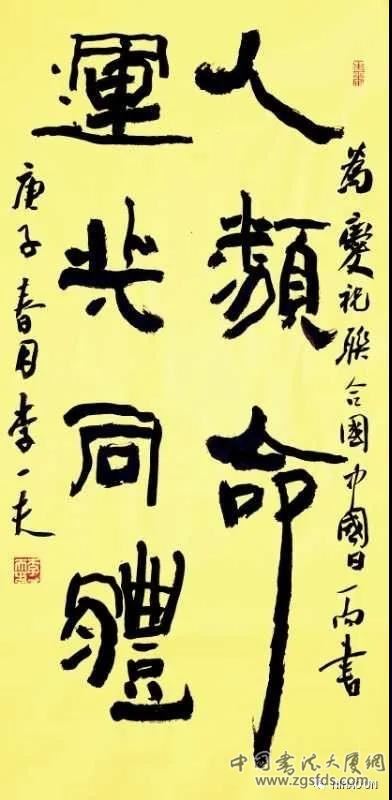 為慶祝聯合國中國日而書
人類命
運共同體
庚子春月李一夫
中国书法大厦網
www.zgsfds.com